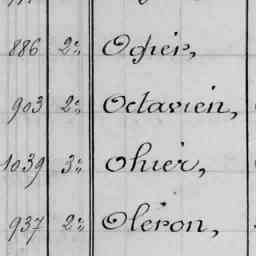 886 2º Ogier,
903 2º Octavien,
1039 3º Ohier,
937 2º Oléron,